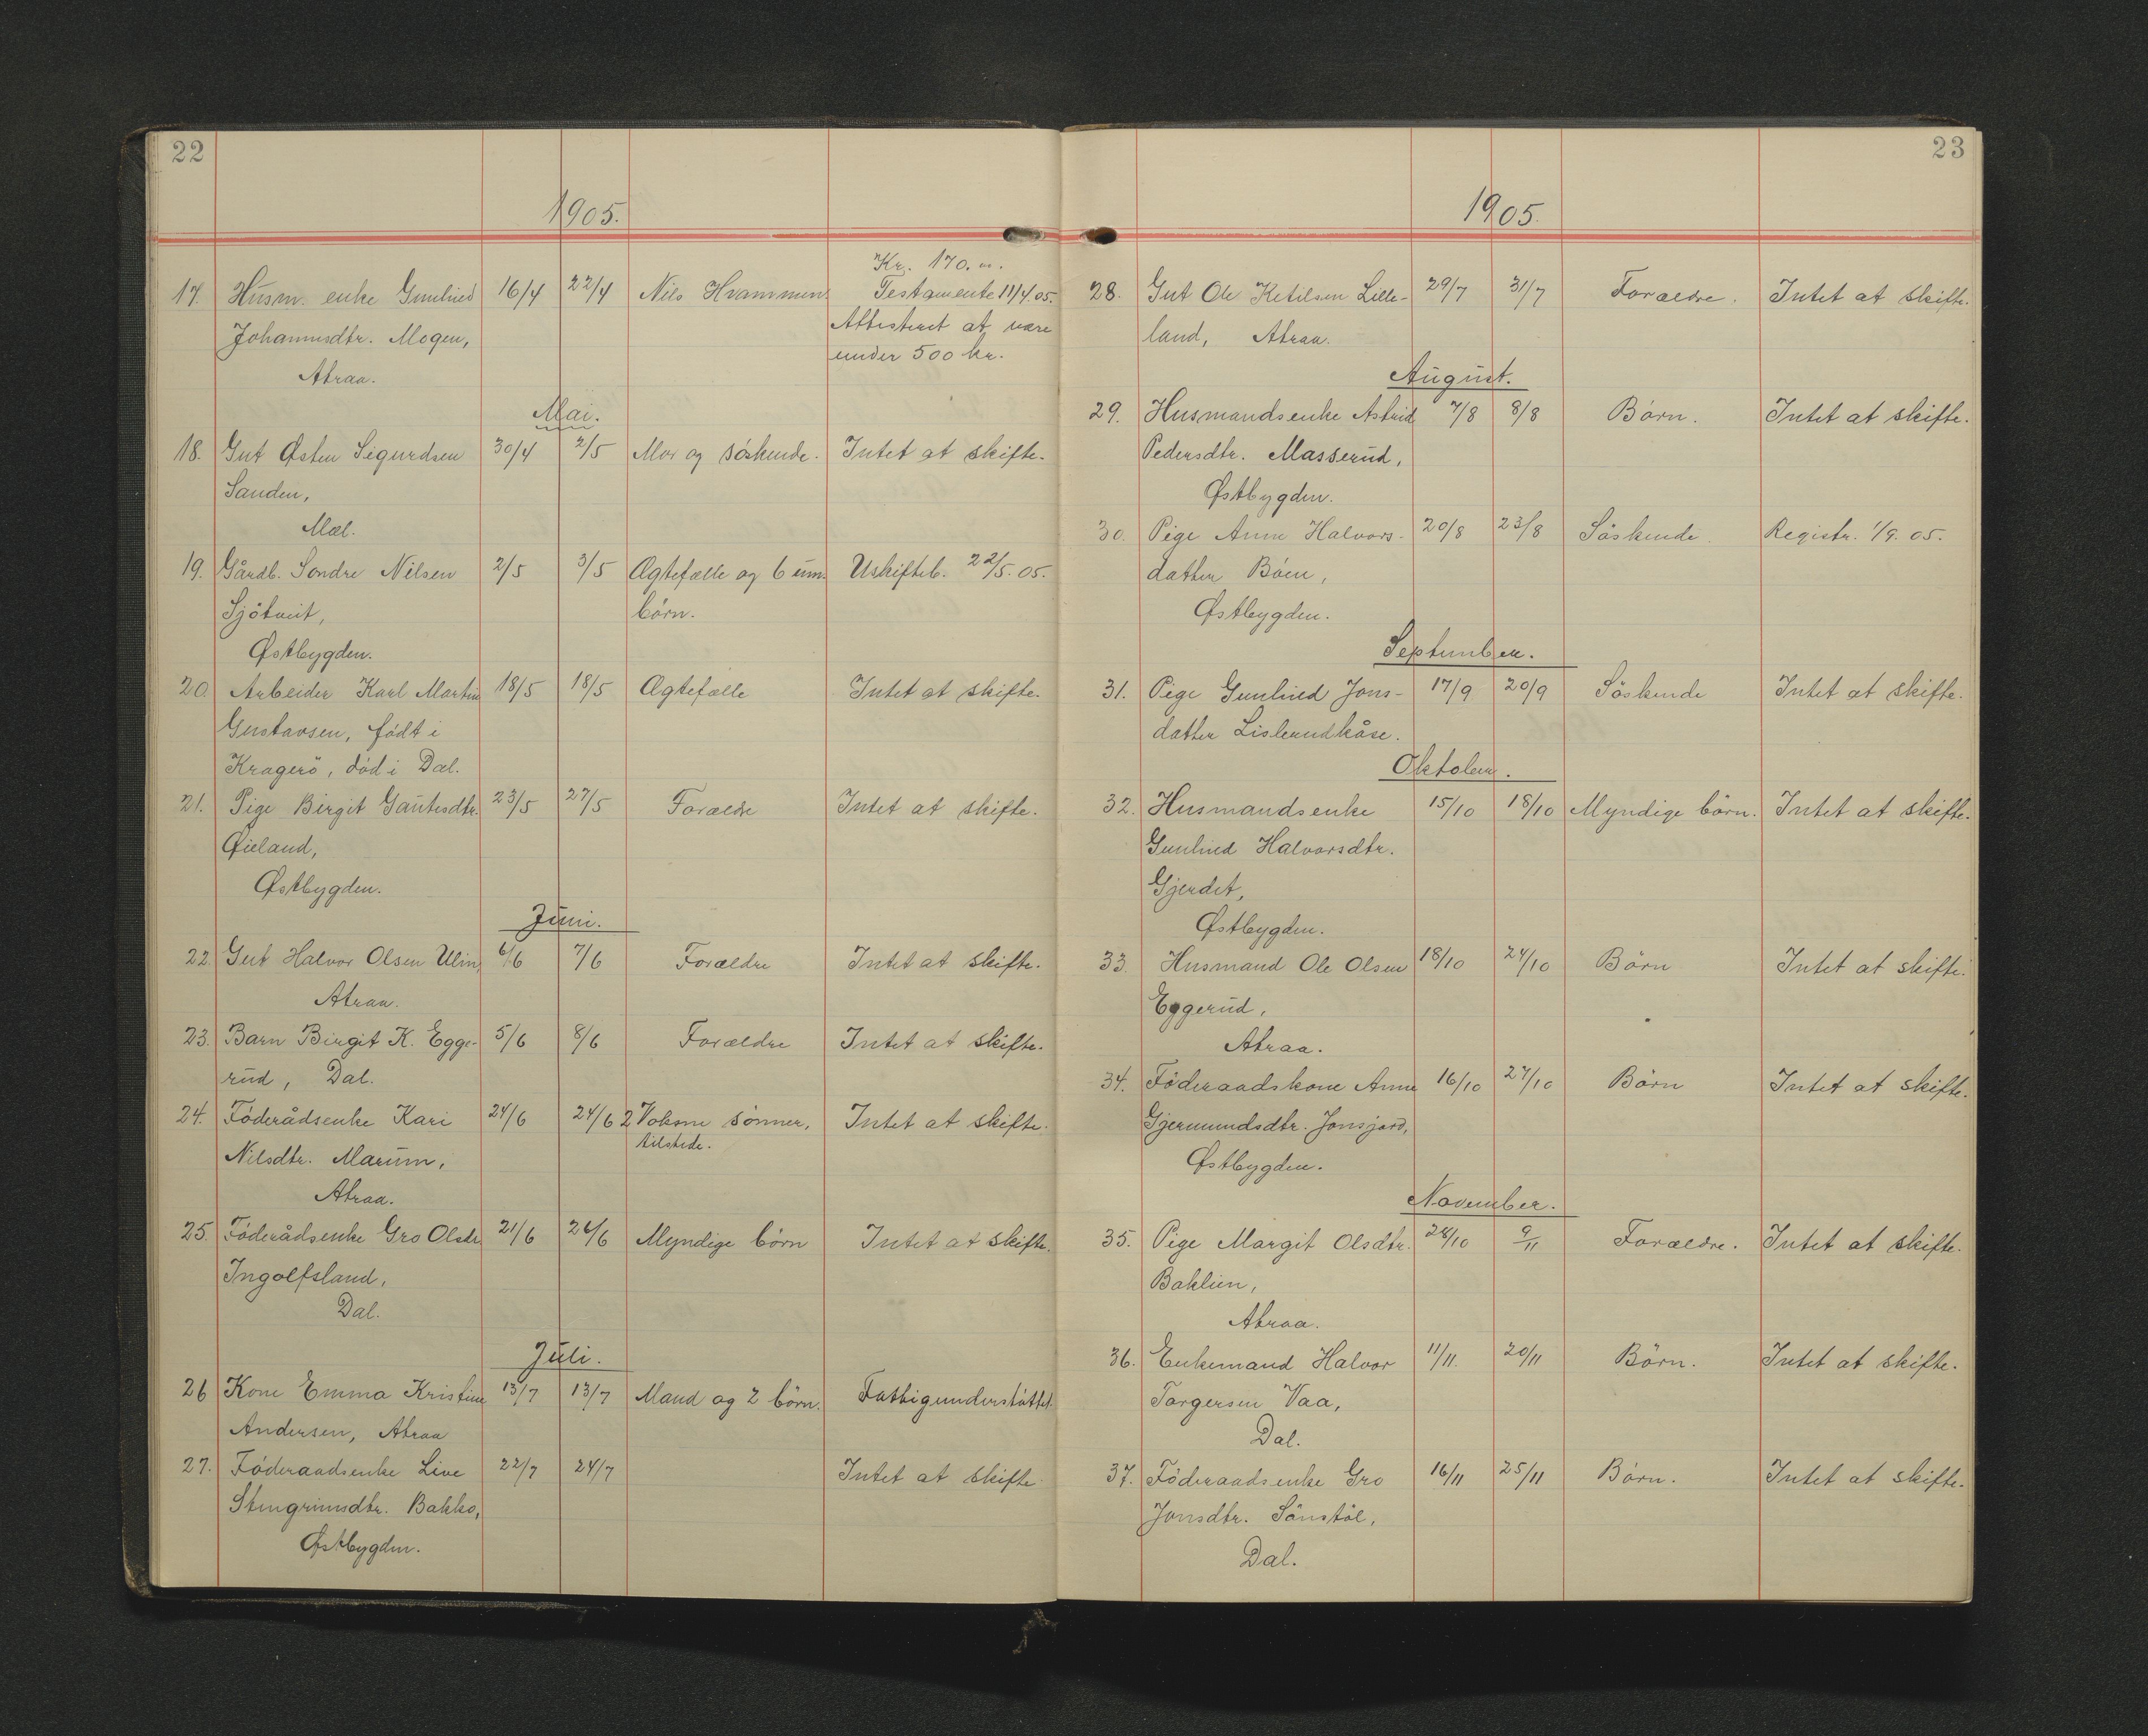 22
1905.
Kr. 170.00.
17. Husm. enke Gunhild 16/4 22/4 Nils Hvammen. Testamente 11/4.05.
Johannesdtr. Mogen, Attesteret at være
under 500 kr.
Atraa.
Mai.
18. Gut Østen Sigurdsen 30/4 2/5 Mor og söskende. Intet at skifte.
Sanden,
Mæl.
19. Gårdb. Sondre Nilsen 2/5 3/5 Ægtefælle og 6 um. Uskifteb. 22/5.05.
Sjötveit, börn.
Østbygden.
20. Arbeider Karl Martin 18/5 18/5 Ægtefælle Intet at skifte.
Gustavsen, födt i
Kragerö, död i Dal.
21. Pige Birgit Gautesdtr. 23/5 27/5 Forældre Intet at skifte.
Øieland,
Østbygden.
Juni.
22. Gut Halvor Olsen Ulin, 6/6 7/6 Forældre Intet at skifte.
Atraa.
23. Barn Birgit K. Egge- 5/6 8/6 Forældre Intet at skifte.
rud, Dal.
24. Föderådsenke Kari 24/6 24/6 2 Voksne sönner, Intet at skifte.
tilstede.
Nilsdtr. Marum,
Atraa.
25. Föderådsenke Gro Olsdr 21/6 26/6 Myndige börn Intet at skifte.
Ingolfsland,
Dal.
Juli.
26 Kone Emma Kristine 13/7 13/7 Mand og 2 börn. Fattigunderstöttet.
Andersen, Atraa
27. Föderaadsenke Live 22/7 24/7 Intet at skifte
Stengrimsdtr. Bakko,
Østbygden.
23
1905.
28. Gut Ole Ketilsen Lille- 29/7 31/7 Forældre. Intet at skifte.
land, Atraa.
August.
29. Husmandsenke Astrid 7/8 8/8 Börn. Intet at skifte.
Pedersdtr. Masserud,
Østbygden.
30. Pige Anne Halvors- 20/8 23/8 Söskende. Registr. 1/9.05.
datter Böen,
Østbygden.
September.
31. Pige Gunhild Jons- 17/9 20/9 Söskende Intet at skifte.
datter Lislerudkåse.
Oktober.
32. Husmandsenke 15/10 18/10 Myndige börn. Intet at skifte.
Gunhild Halvorsdtr.
Gjerdet,
Østbygden.
33. Husmand Ole Olsen 18/10 24/10 Börn Intet at skifte.
Eggerud,
Atraa.
34. Föderaadskone Anne 16/10 27/10 Börn Intet at skifte.
Gjermundsdtr. Jonsjord,
Østbygden.
November.
35. Pige Margit Olsdtr. 28/10 9/11 Forældre. Intet at skifte.
Baklien,
Atraa.
36. Enkemand Halvor 11/11. 20/11 Börn. Intet at skifte.
Torgersen Vaa,
Dal.
37. Föderaadsenke Gro 16/11 25/11 Börn. Intet at skifte.
Jonsdtr. Sönstöl,
Dal.